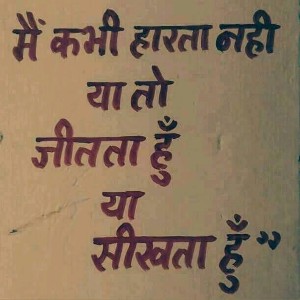 मैं कभी हारता नही
या तो
जीतता हुँ
या
सीखता हुँ”